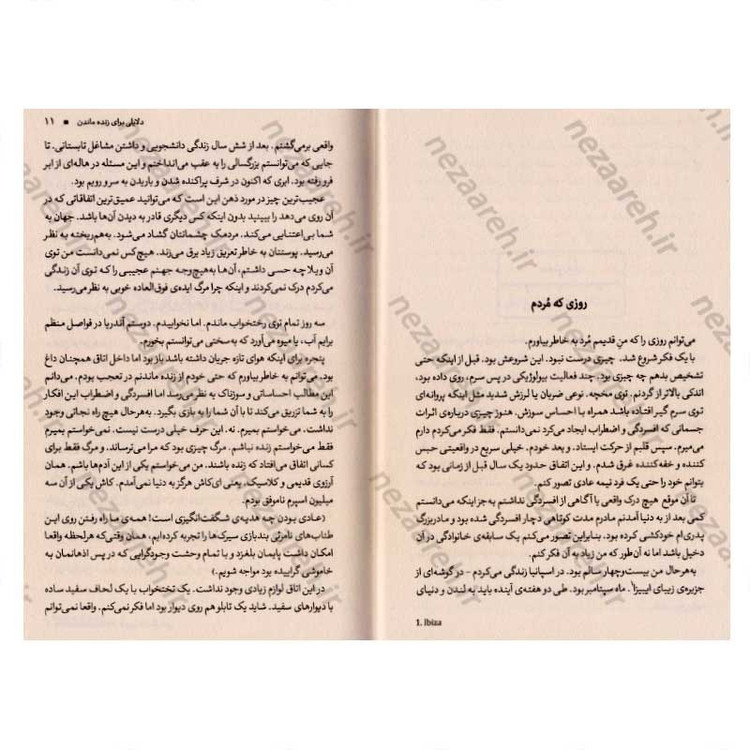 روزی که مُردم
می‌توانم روزی را که منِ قدیمم مُرد به خاطر بیاورم.
با یک فکر شروع شد. چیزی درست نبود. این شروعش بود. قبل از اینکه حتی
تشخیص بدهم چه چیزی بود. چند فعالیت بیولوژیکی در پس سرم، روی داده بود،
اندکی بالاتر از گردنم. توی مخچه. نوعی ضربان یا لرزش شدید مثل اینکه پروانه‌ای
توی سرم گیر افتاده باشد همراه با احساس سوزش. هنوز چیزی درباره‌ی اثرات
جسمانی که افسردگی و اضطراب ایجاد می‌کرد نمی‌دانستم. فقط فکر می‌کردم دارم
می‌میرم. سپس قلبم از حرکت ایستاد. و بعد خودم. خیلی سریع در واقعیتی حبس
کننده و خفه‌کننده غرق شدم. و این اتفاق حدود یک سال قبل از زمانی بود که
بتوانم خود را حتی یک فرد نیمه عادی تصور کنم.
تا آن موقع هیچ درک واقعی یا آگاهی از افسردگی نداشتم به‌جز اینکه می‌دانستم
کمی بعد از به دنیا آمدنم مادرم مدت کوتاهی دچار افسردگی شده بود و مادربزرگ
پدری‌ام خودکشی کرده بود. بنابراین تصور می‌کنم یک سابقه‌ی خانوادگی در آن
دخیل باشد اما نه آن‌طور که من زیاد به آن فکر کنم.
به‌هرحال من بیست‌وچهار سالم بود. در اسپانیا زندگی می‌کردم – در گوشه‌ای از
جزیره‌ی زیبای ایبیزا¹. ماه سپتامبر بود. طی دو هفته‌ی آینده باید به لندن و دنیای
1. Ibiza
دلایلی برای زنده ماندن ■ ۱۱
واقعی برمی‌گشتم. بعد از شش سال زندگی دانشجویی و داشتن مشاغل تابستانی. تا
جایی که می‌توانستم بزرگسالی را به عقب می‌انداختم و این مسئله در هاله‌ای از ابر
فرو رفته بود. ابری که اکنون در شرف پراکنده شدن و باریدن به سر و رویم بود.
عجیب‌ترین چیز در مورد ذهن این است که می‌توانید عمیق‌ترین اتفاقاتی که در
آن روی می‌دهد را ببینید بدون اینکه کس دیگری قادر به دیدن آن‌ها باشد. جهان به
شما بی‌اعتنایی می‌کند. مردمک چشمانتان گشاد می‌شود. به‌هم‌ریخته به نظر
می‌رسید. پوستتان به خاطر تعریق زیاد برق می‌زند. هیچ‌کس نمی‌دانست من توی
آن ویلا چه حسی داشتم، آن‌ها به‌هیچ‌وجه جهنم عجیبی را که توی آن زندگی
می‌کردم درک نمی‌کردند و اینکه چرا مرگ ایده‌ی فوق‌العاده خوبی به نظر می‌رسید.
سه روز تمام توی رختخواب ماندم. اما نخوابیدم. دوستم آندریا در فواصل منظم
برایم آب، یا میوه می‌آورد که به سختی می‌توانستم بخورم.
پنجره برای اینکه هوای تازه جریان داشته باشد باز بود اما داخل اتاق همچنان داغ
بود. می‌توانم به خاطر بیاورم که حتی خودم از زنده ماندنم در تعجب بودم. می‌دانم
این مطالب احساساتی و سوزناک به نظر می‌رسد اما افسردگی و اضطراب این افکار
را به شما تزریق می‌کند تا با آن شما را به بازی بگیرد. به‌هرحال هیچ راه نجاتی وجود
نداشت. می‌خواستم بمیرم. نه. این حرف خیلی درست نیست. نمی‌خواستم بمیرم
فقط می‌خواستم زنده نباشم. مرگ چیزی بود که مرا می‌ترساند. و مرگ فقط برای
کسانی اتفاق می‌افتاد که زنده باشند. من می‌خواستم یکی از این آدم‌ها باشم. همان
آرزوی قدیمی و کلاسیک، یعنی ای‌کاش هرگز به دنیا نمی‌آمدم. کاش یکی از آن سه
میلیون اسپرم ناموفق بودم.
(عادی بودن چه هدیه‌ی شگفت‌انگیزی است! همه‌ی ما راه رفتن روی این
طناب‌های نامرئی بندبازی سیرک‌ها را تجربه کرده‌ایم، همان وقتی‌که هر لحظه واقعا
امکان داشت پایمان بلغزد و با تمام وحشت وجودگرایی که در پس اذهانمان به
خاموشی گراییده بود مواجه شویم.)
در این اتاق لوازم زیادی وجود نداشت. یک تختخواب با یک لحاف سفید ساده
با دیوارهای سفید. شاید یک تابلو هم روی دیوار بود اما فکر نمی‌کنم. واقعا نمی‌توانم
nezaareh.ir